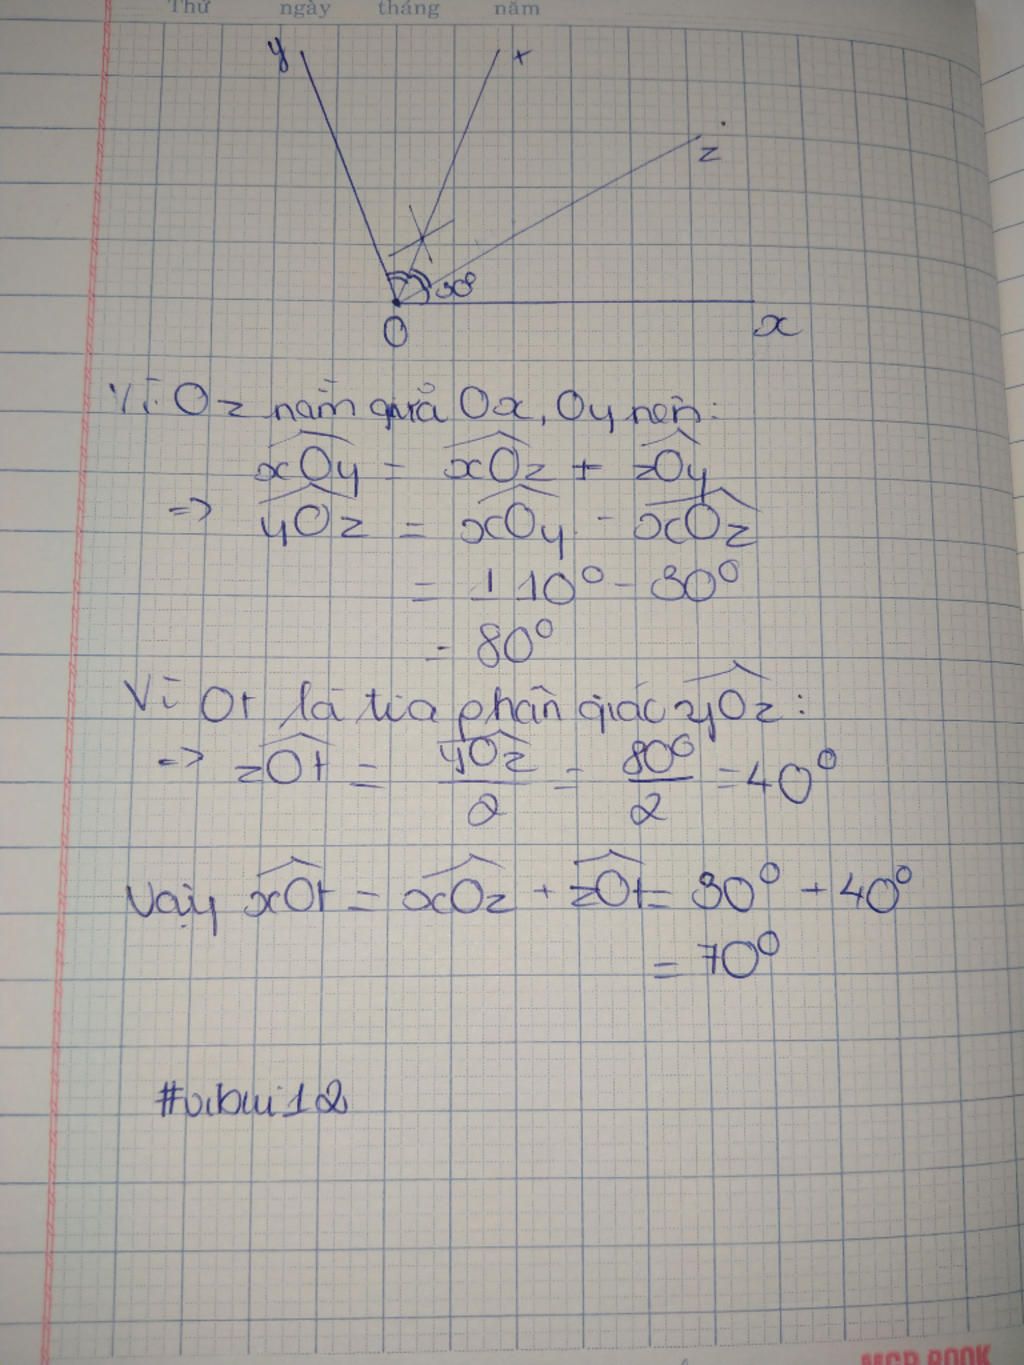 Thứ ngày tháng năm
y t
z
30°
O x
Vì Oz nằm giữa Ox, Oy nên:
xOy = xOz + zOy
=> yOz = xOy - xOz
= 110° - 30°
= 80°
Vì Ot là tia phân giác yOz:
=> zOt = yOz/2 = 80°/2 = 40°
Vậy xOt = xOz + zOt = 30° + 40°
= 70°
MCR BOOK